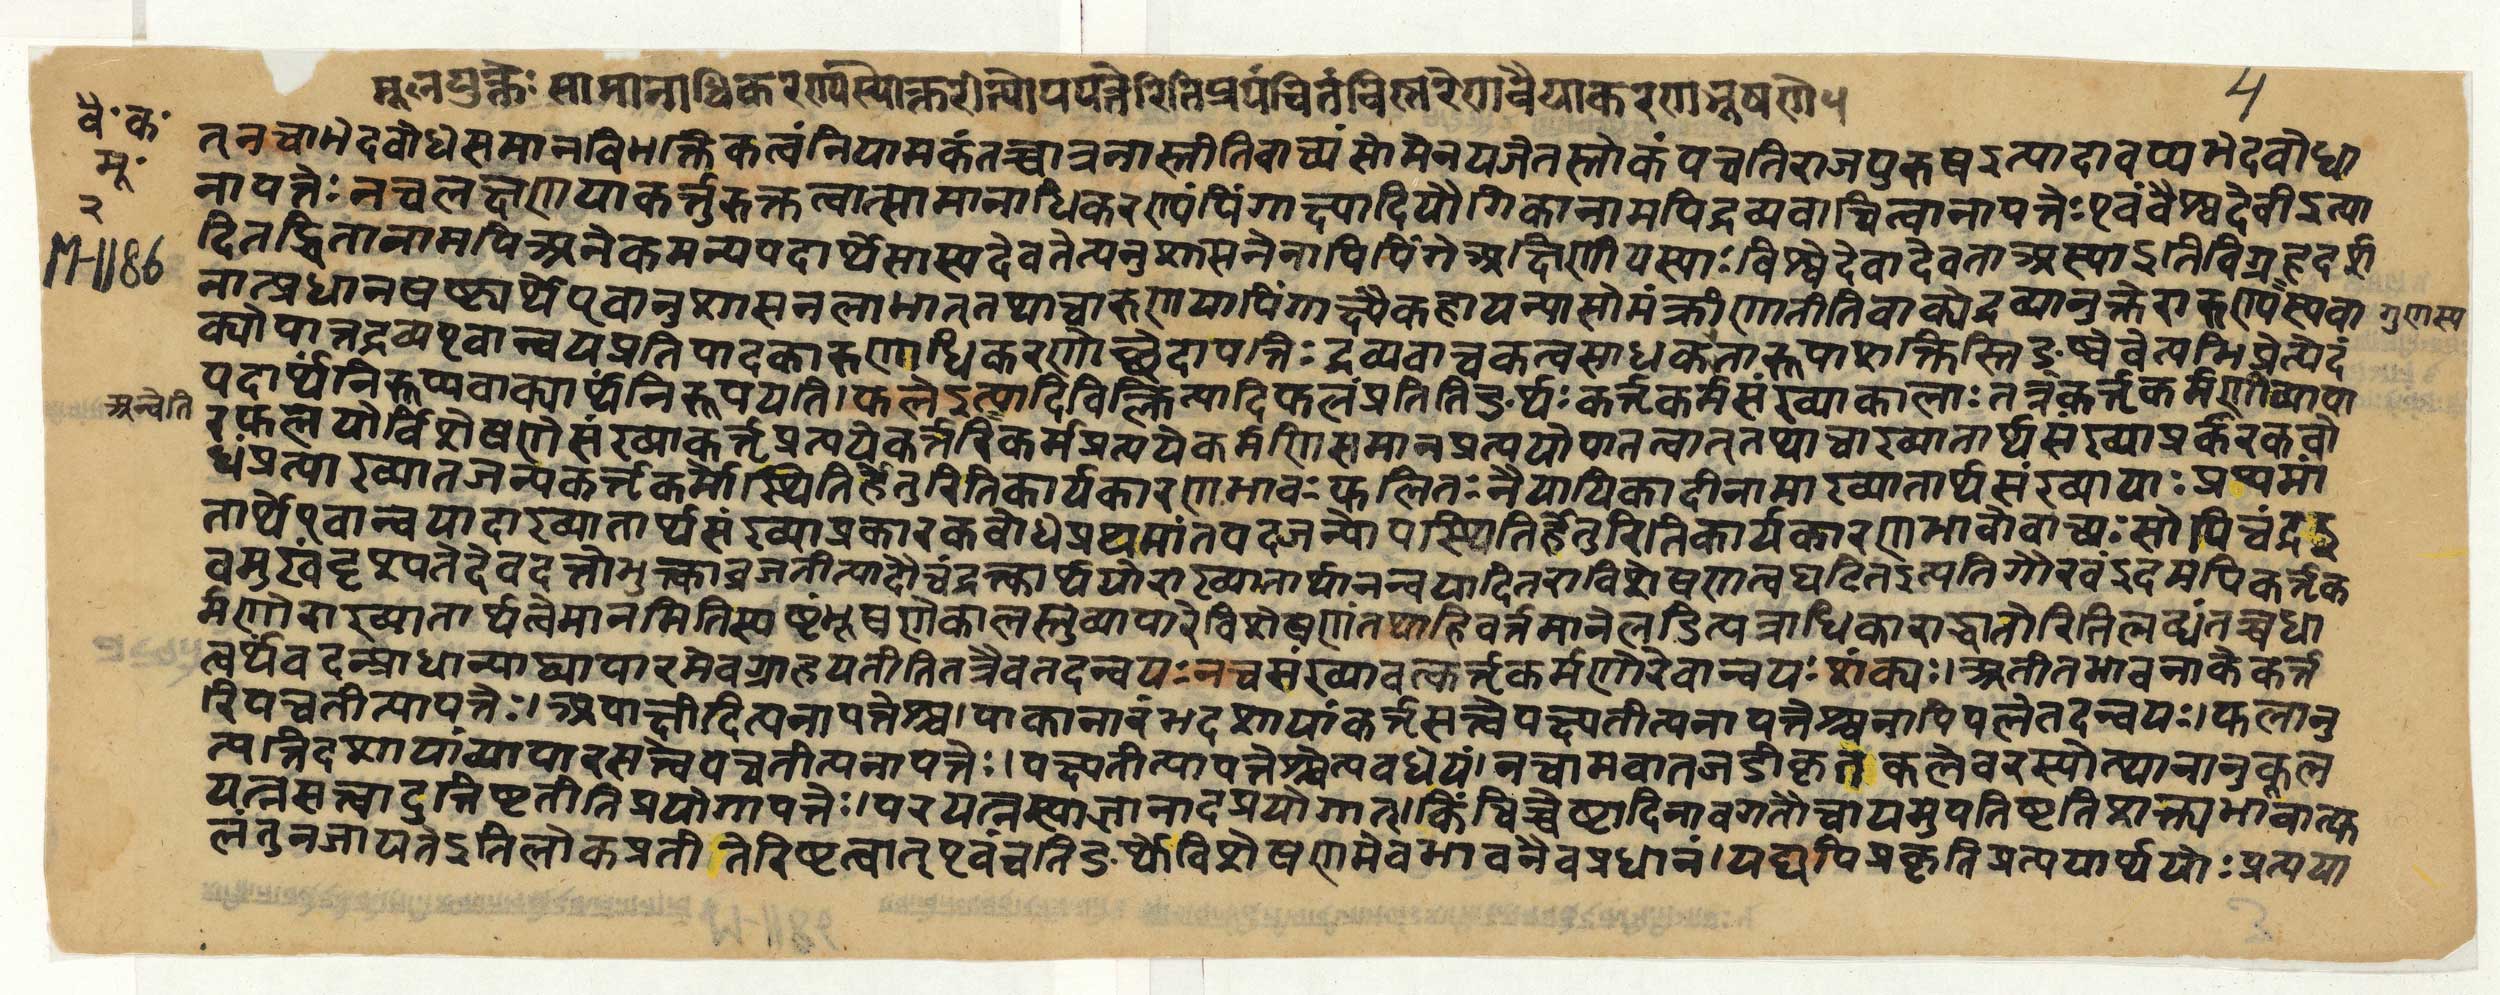 मूलयुक्तेः सामानाधिकरण्यस्योक्तरीत्योपपत्तेरिति प्रपंचितं विस्तरेण वैयाकरणभूषणे ५
4
वै॰ क॰
भू॰
२
M-1186
त् न चाभेदबोधे समानविभक्तिकत्वं नियामकं तच्चात्र नास्तीति वाच्यं सोमेन यजेत स्तोकं पचति राजपुरुष इत्यादावप्यभेदबोधा
नापत्तेः न च लक्षणया कर्त्तुरुक्तत्वात्सामानाधिकरण्यं पिंगाक्ष्यादियौगिकानामपि द्रव्यवाचित्वानापत्तेः एवं वैश्वदेवी इत्या
दितद्धितानामपि अनेकमन्यपदार्थे सास्य देवतेत्यनुशासनेनापि पिंगे अक्षिणी यस्याः विश्वेदेवा देवता अस्या इति विग्रहदर्श
नात्प्रधानषष्ठ्यर्थे एवानुशासनलाभात् तथा चारुणया पिंगाक्ष्यैकहायन्या सोमं क्रीणातीति वाक्ये द्रव्यानुक्तेरारुण्यस्य वा
गुणस्य
क्योपात्तद्रव्य एवान्वयप्रतिपादकारुणाधिकरणोच्छेदापत्तिः द्रव्यवाचकत्वसाधकतारूपा शक्तिस्तिङ्क्ष्वेवेत्यभिप्रेत्येदं
पदार्थं निरूप्य वाक्यार्थं निरूपयति । फले इत्यादि विक्लित्यादि फलं प्रति तिङर्थः कर्त्तृकर्मसंख्याकालाः तत्र कर्त्तृकर्मणी व्यापा
अन्वेति
रफलयोर्विशेषणे संख्या कर्त्तृप्रत्यये कर्त्तरि कर्मप्रत्यये कर्मणि समानप्रत्ययोपात्तत्वात् तथा चाख्यातार्थसंख्याप्रकारकबो
धं प्रत्याख्यातजन्यकर्त्तृकर्मोपस्थितिर्हेतुरिति कार्यकारणभावः फलितः नैयायिकादीनामाख्यातार्थसंख्यायाः प्रथमां
तार्थे एवान्वयादाख्यातार्थसंख्याप्रकारकबोधे प्रथमांतपदजन्योपस्थितिर्हेतुरिति कार्यकारणभावो वाच्यः सो पि चंद्र इ
व मुखं दृश्यते देवदत्तो भुक्त्वा व्रजतीत्यादौ चंद्रक्त्वार्थयोराख्यातार्थानन्वयादितराविशेषणत्वघटित इत्यतिगौरवं इदमपि कर्त्तृक
र्मणोराख्यातार्थत्वे मानमिति स्पष्टं भूषणे कालस्तु व्यापारे विशेषणं तथा हि वर्त्तमाने लडित्यत्राधिकाराद्धातोरिति लब्धं तच्च धा
त्वर्थं वदत्प्राधान्याद्व्यापारमेव ग्राहयतीति तत्रैव तदन्वयः न च संख्यावत्कर्त्तृकर्मणोरेवान्वयः शंक्यः । अतीतभावनाके कर्त्त
रि पचतीत्यापत्तेः । अपाक्षीदित्यनापत्तेश्च । पाकानारंभदशायां कर्त्तृसत्त्वे पक्ष्यतीत्यनापत्तेश्च नापि फले तदन्वयः । फलानु
त्पत्तिदशायां व्यापारसत्त्वे पचतीत्यनापत्तेः । पक्ष्यतीत्यापत्तेश्चेत्यवधेयं । न चामवातजडीकृतकलेवरस्योत्थानानुकूल
यत्नसत्त्वादुत्तिष्टतीति प्रयोगापत्तेः । परयत्नस्याज्ञानादप्रयोगात् । किंचिच्चेष्टादिनावगतौ चायमुपतिष्टति शक्त्यभावात्फ
लं तु न जायते इति लोकप्रतीतेरिष्टत्वात् एवं च तिङर्थो विशेषणमेव भावनैव प्रधानं । यद्यपि प्रकृतिप्रत्ययार्थयोः प्रत्यया